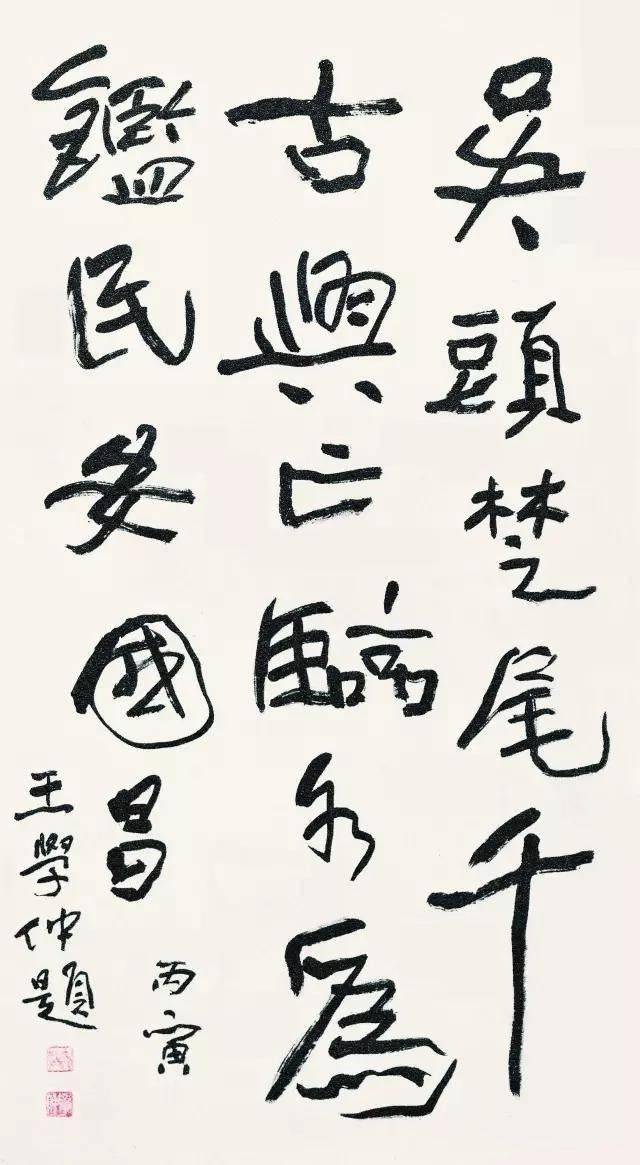 吳頭楚尾千
古興亡臨水為
鑑民安國昌
丙寅
王學仲題